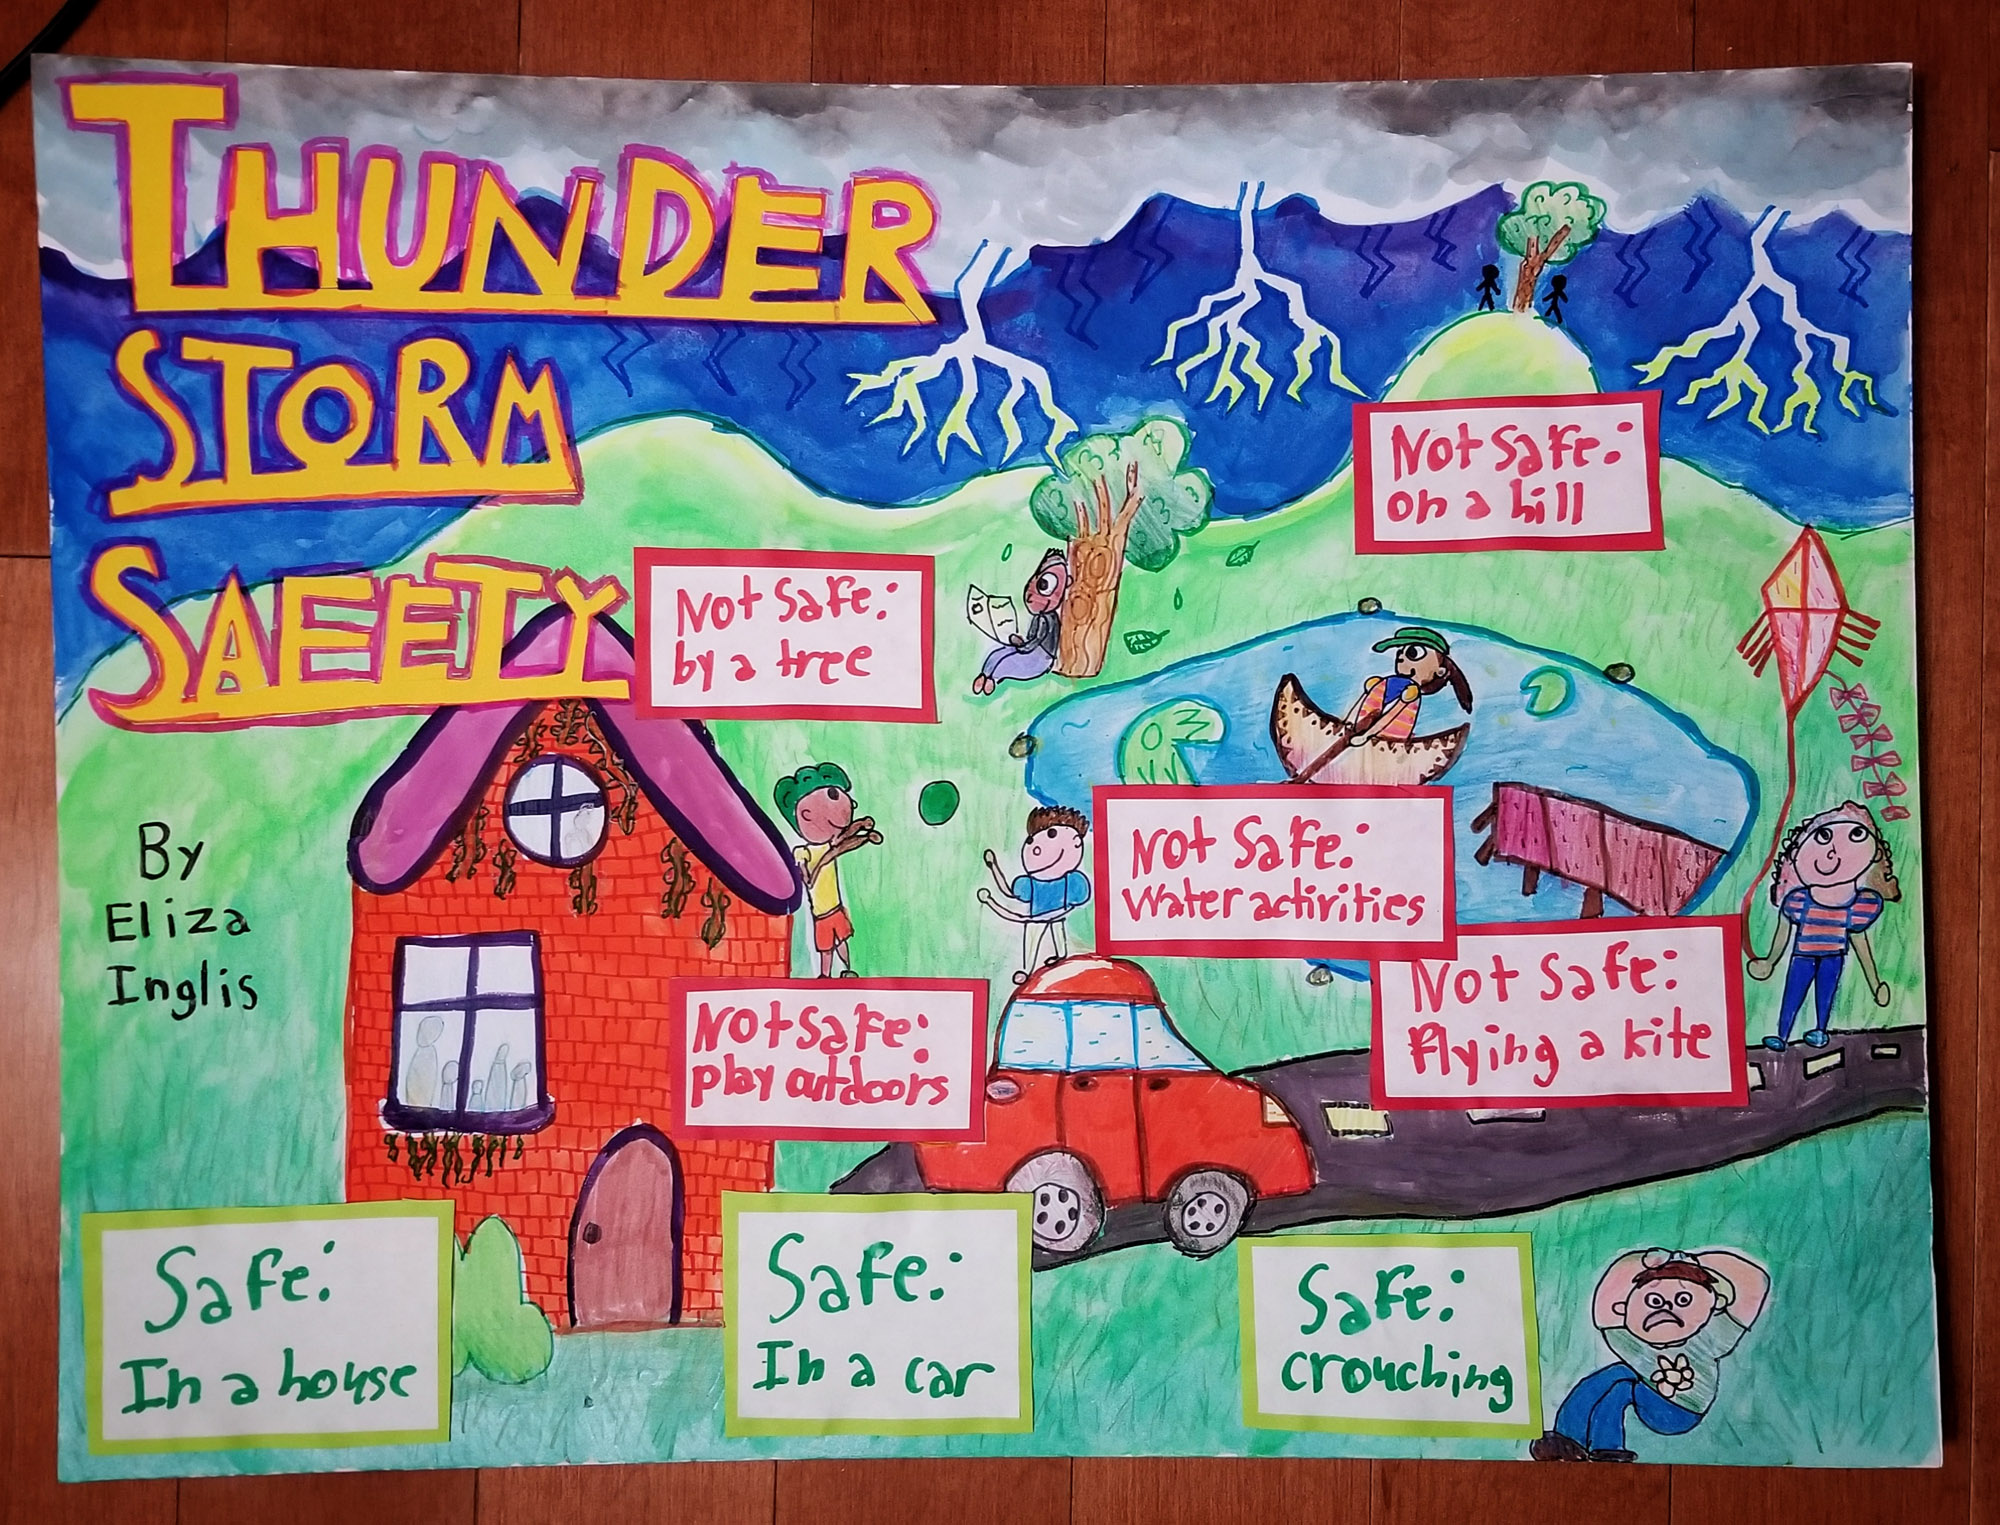 THUNDER
STORM
SAFETY
By
Eliza
Inglis
Not Safe:
on a hill
Not Safe:
by a tree
Not Safe:
Water activities
Not Safe:
Flying a kite
Not Safe:
play outdoors
Safe:
In a house
Safe:
In a car
Safe:
crouching